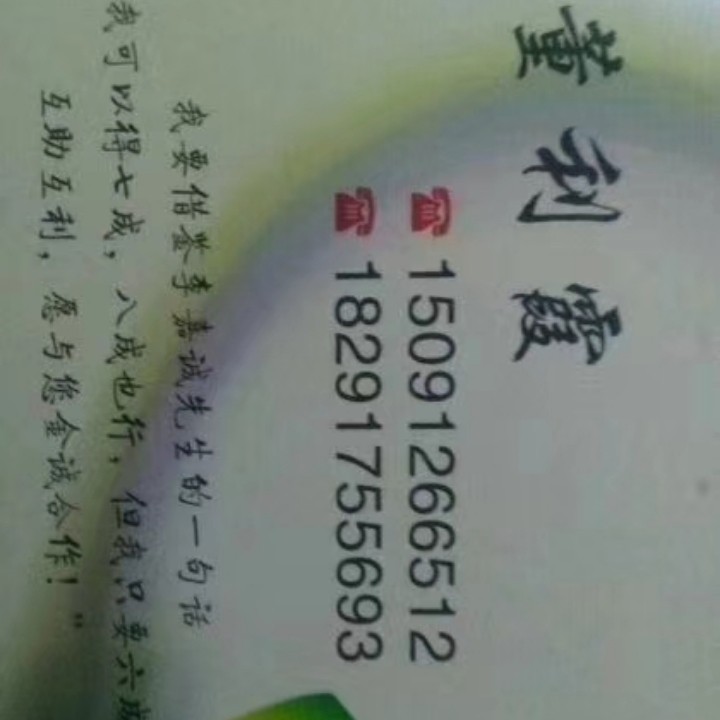 董利霞
☎15091266512
☎18291755693
我要借鉴李嘉诚先生的一句话
我可以得七成，八成也行，但我只要六成
互助互利，愿与您金诚合作！”